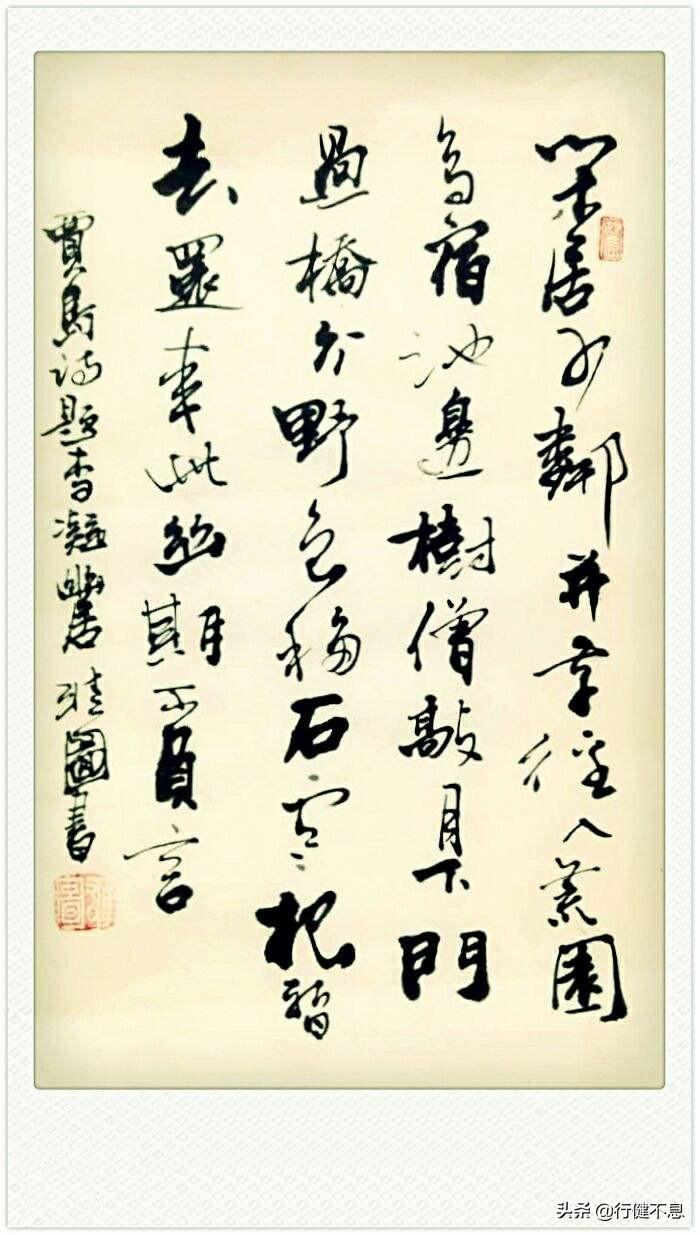 閑居少鄰并草徑入荒園
鳥宿池邊樹僧敲月下門
過橋分野色移石雲根暫
去還來此幽期不負言
賈島詩題李凝幽居 圖書
头条 @行健不息